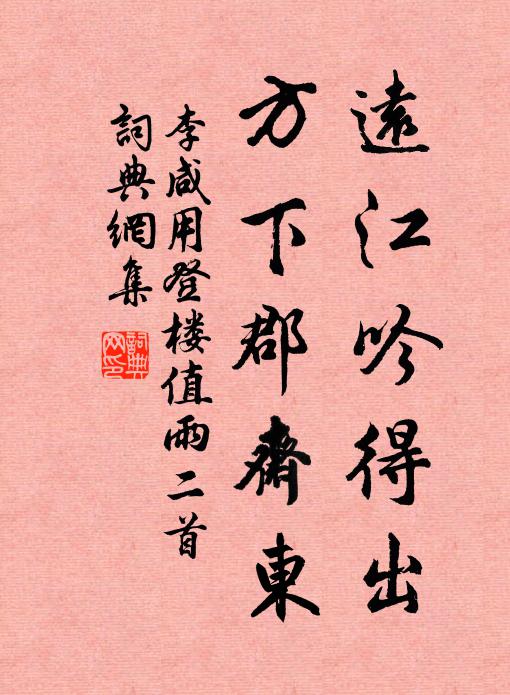 遠江吟得出
方下郡齋東
李咸用登楼值雨二首
詞典網集
詞典网印